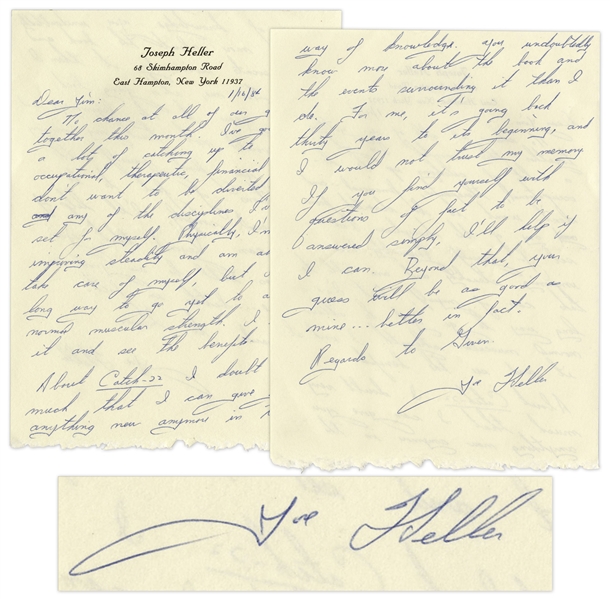 Joseph Heller
68 Skimhampton Road
East Hampton, New York 11937
1/16/84
Dear Jim:
No chance at all of our g
together this month. I've go
a lot of catching up to
occupational, therapeutic, financial
don't want to be diverted
any of the disciplines I'v
set for myself. Physically, I'm
improving steadily and am a
take care of myself, but
long way to go yet to
normal muscular strength. I
it and see the benefits.
About Catch-22 I doubt
much that I can give
anything new anymore in
way of knowledge. You undoubtedly
know more about the book and
the events surrounding it than I
do. For me, it's going back
thirty years to its beginning, and
I would not trust my memory.
If you find yourself with
questions of fact to be
answered simply, I'll help if
I can. Beyond that, your
guess will be as good as
mine... better in fact.
Regards to
Joe Heller
Joe Heller